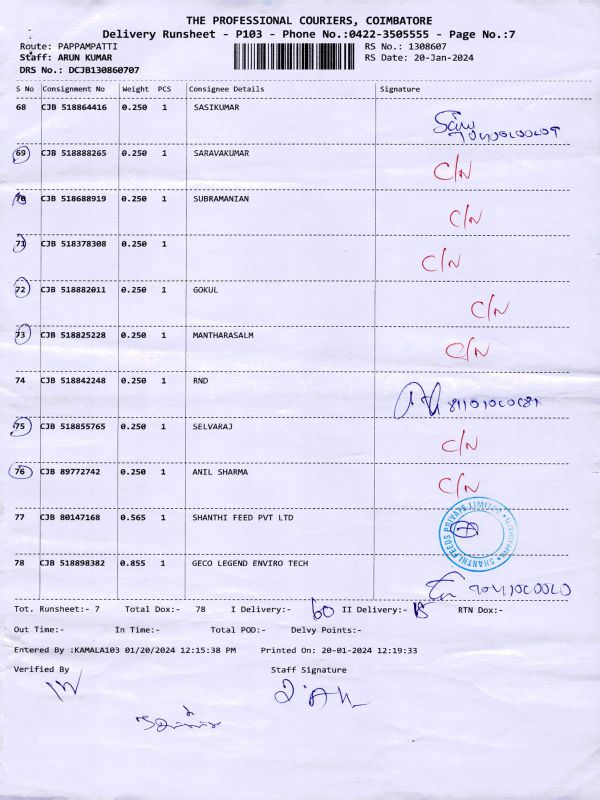 THE PROFESSIONAL COURIERS, COIMBATORE
Delivery Runsheet - P103 - Phone No.:0422-3505555 - Page No.:7
Route: PAPPAMPATTI RS No.: 1308607
Staff: ARUN KUMAR RS Date: 20-Jan-2024
DRS No.: DCJB130860707
S No Consignment No Weight PCS Consignee Details Signature
68 CJB 518864416 0.250 1 SASIKUMAR
69 CJB 518888265 0.250 1 SARAVAKUMAR C/N
70 CJB 518688919 0.250 1 SUBRAMANIAN C/N
71 CJB 518378308 0.250 1 C/N
72 CJB 518882011 0.250 1 GOKUL C/N
73 CJB 518825228 0.250 1 MANTHARASALM C/N
74 CJB 518842248 0.250 1 RND
75 CJB 518855765 0.250 1 SELVARAJ C/N
76 CJB 89772742 0.250 1 ANIL SHARMA C/N
77 CJB 80147168 0.565 1 SHANTHI FEED PVT LTD SHANTHI FEEDS PRIVATE LIMITED
78 CJB 518898382 0.855 1 GECO LEGEND ENVIRO TECH
Tot. Runsheet:- 7 Total Dox:- 78 I Delivery:- 60 II Delivery:- 18 RTN Dox:-
Out Time:- In Time:- Total POD:- Delvy Points:-
Entered By :KAMALA103 01/20/2024 12:15:38 PM Printed On: 20-01-2024 12:19:33
Verified By Staff Signature